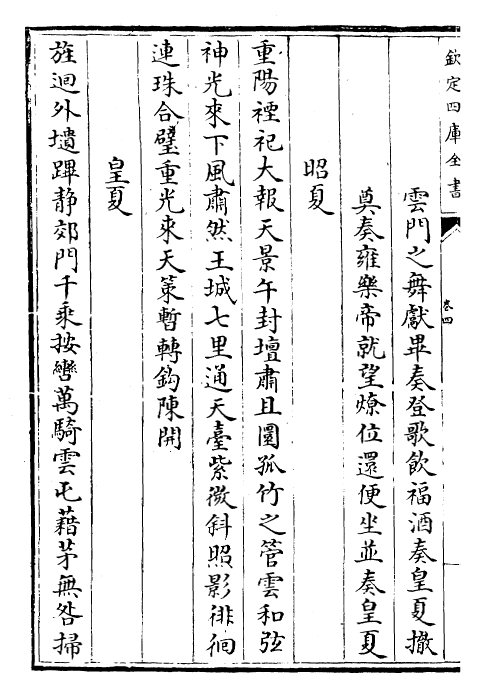 欽定四庫全書
卷四
雲門之舞獻畢奏登歌飲福酒奏皇夏撤
奠奏雍樂帝就望燎位還便坐並奏皇夏
昭夏
重陽禋祀大報天景午封壇肅且圜孤竹之管雲和弦
神光來下風肅然王城七里通天臺紫微斜照影徘徊
連珠合璧重光來天策暫轉鈎陳開
皇夏
旌迴外壝蹕静郊門千乘按轡萬騎雲屯藉茅無咎掃